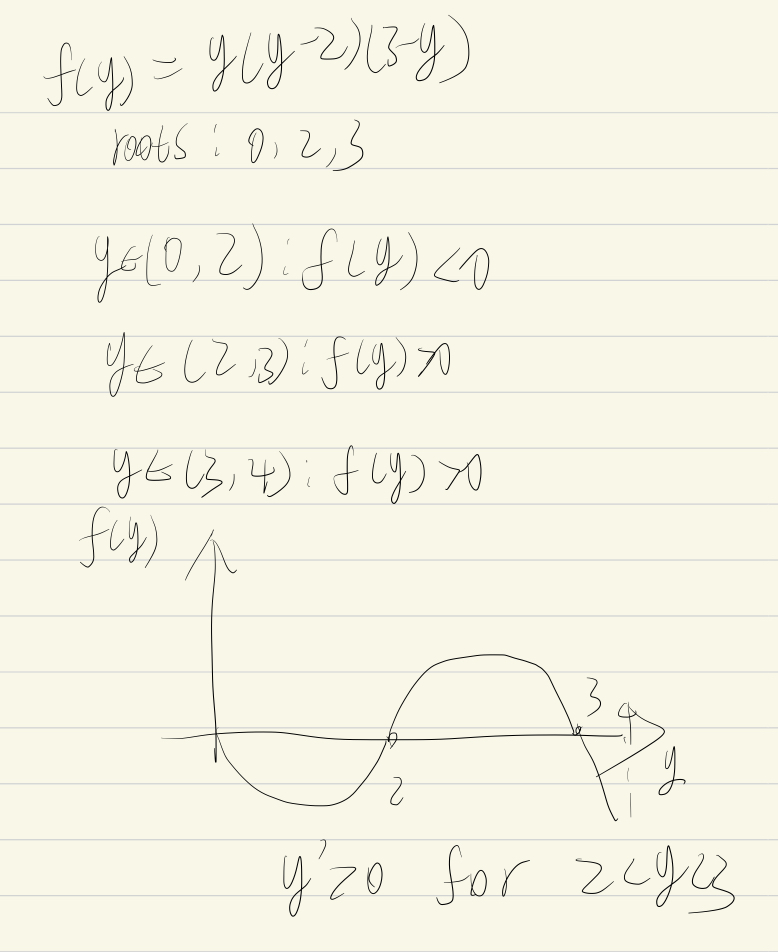 f(y) = y(y-2)(3-y)
roots : 0, 2, 3
y∈(0,2) : f(y)<0
y∈(2,3) : f(y)>0
y∈(3,4) : f(y)>0
f(y)
3
4
y
2
y'≥0 for 2<y≤3